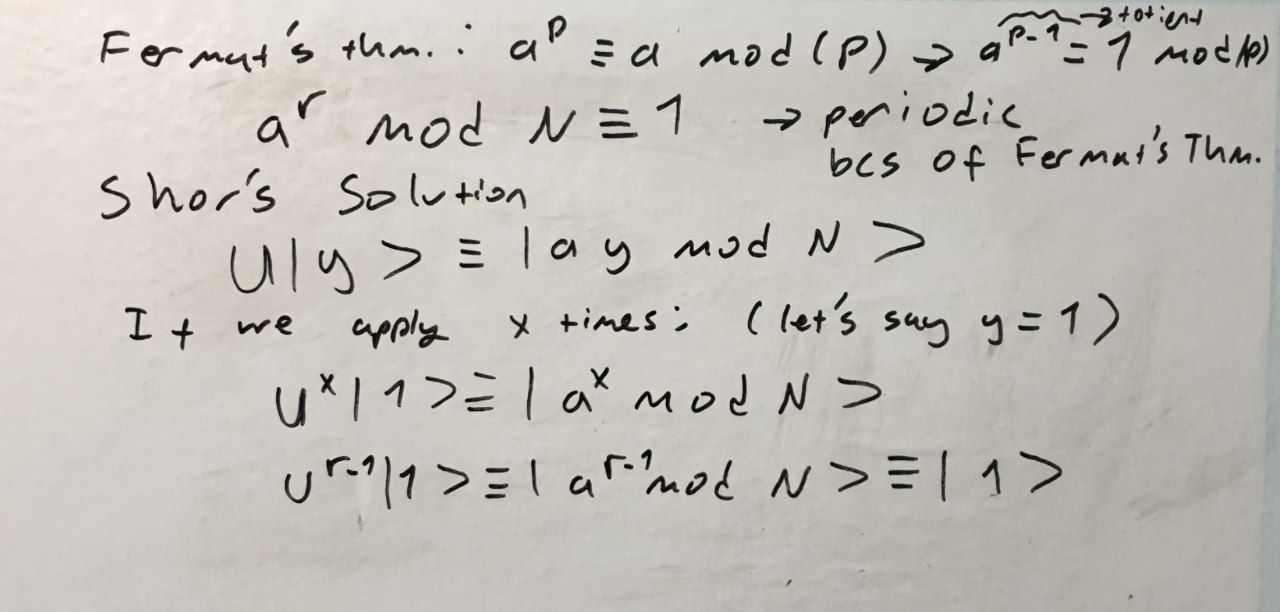 Fermat's thm. : a^p ≡ a mod (p) → a^{p-1} = 1 mod(p) → totient
a^r mod N ≡ 1 → periodic
bcs of Fermat's Thm.
Shor's Solution
U|y> ≡ |a y mod N>
If we apply x times: (let's say y = 1)
U^x|1> ≡ |a^x mod N>
U^{r-1}|1> ≡ |a^{r-1} mod N> ≡ |1>